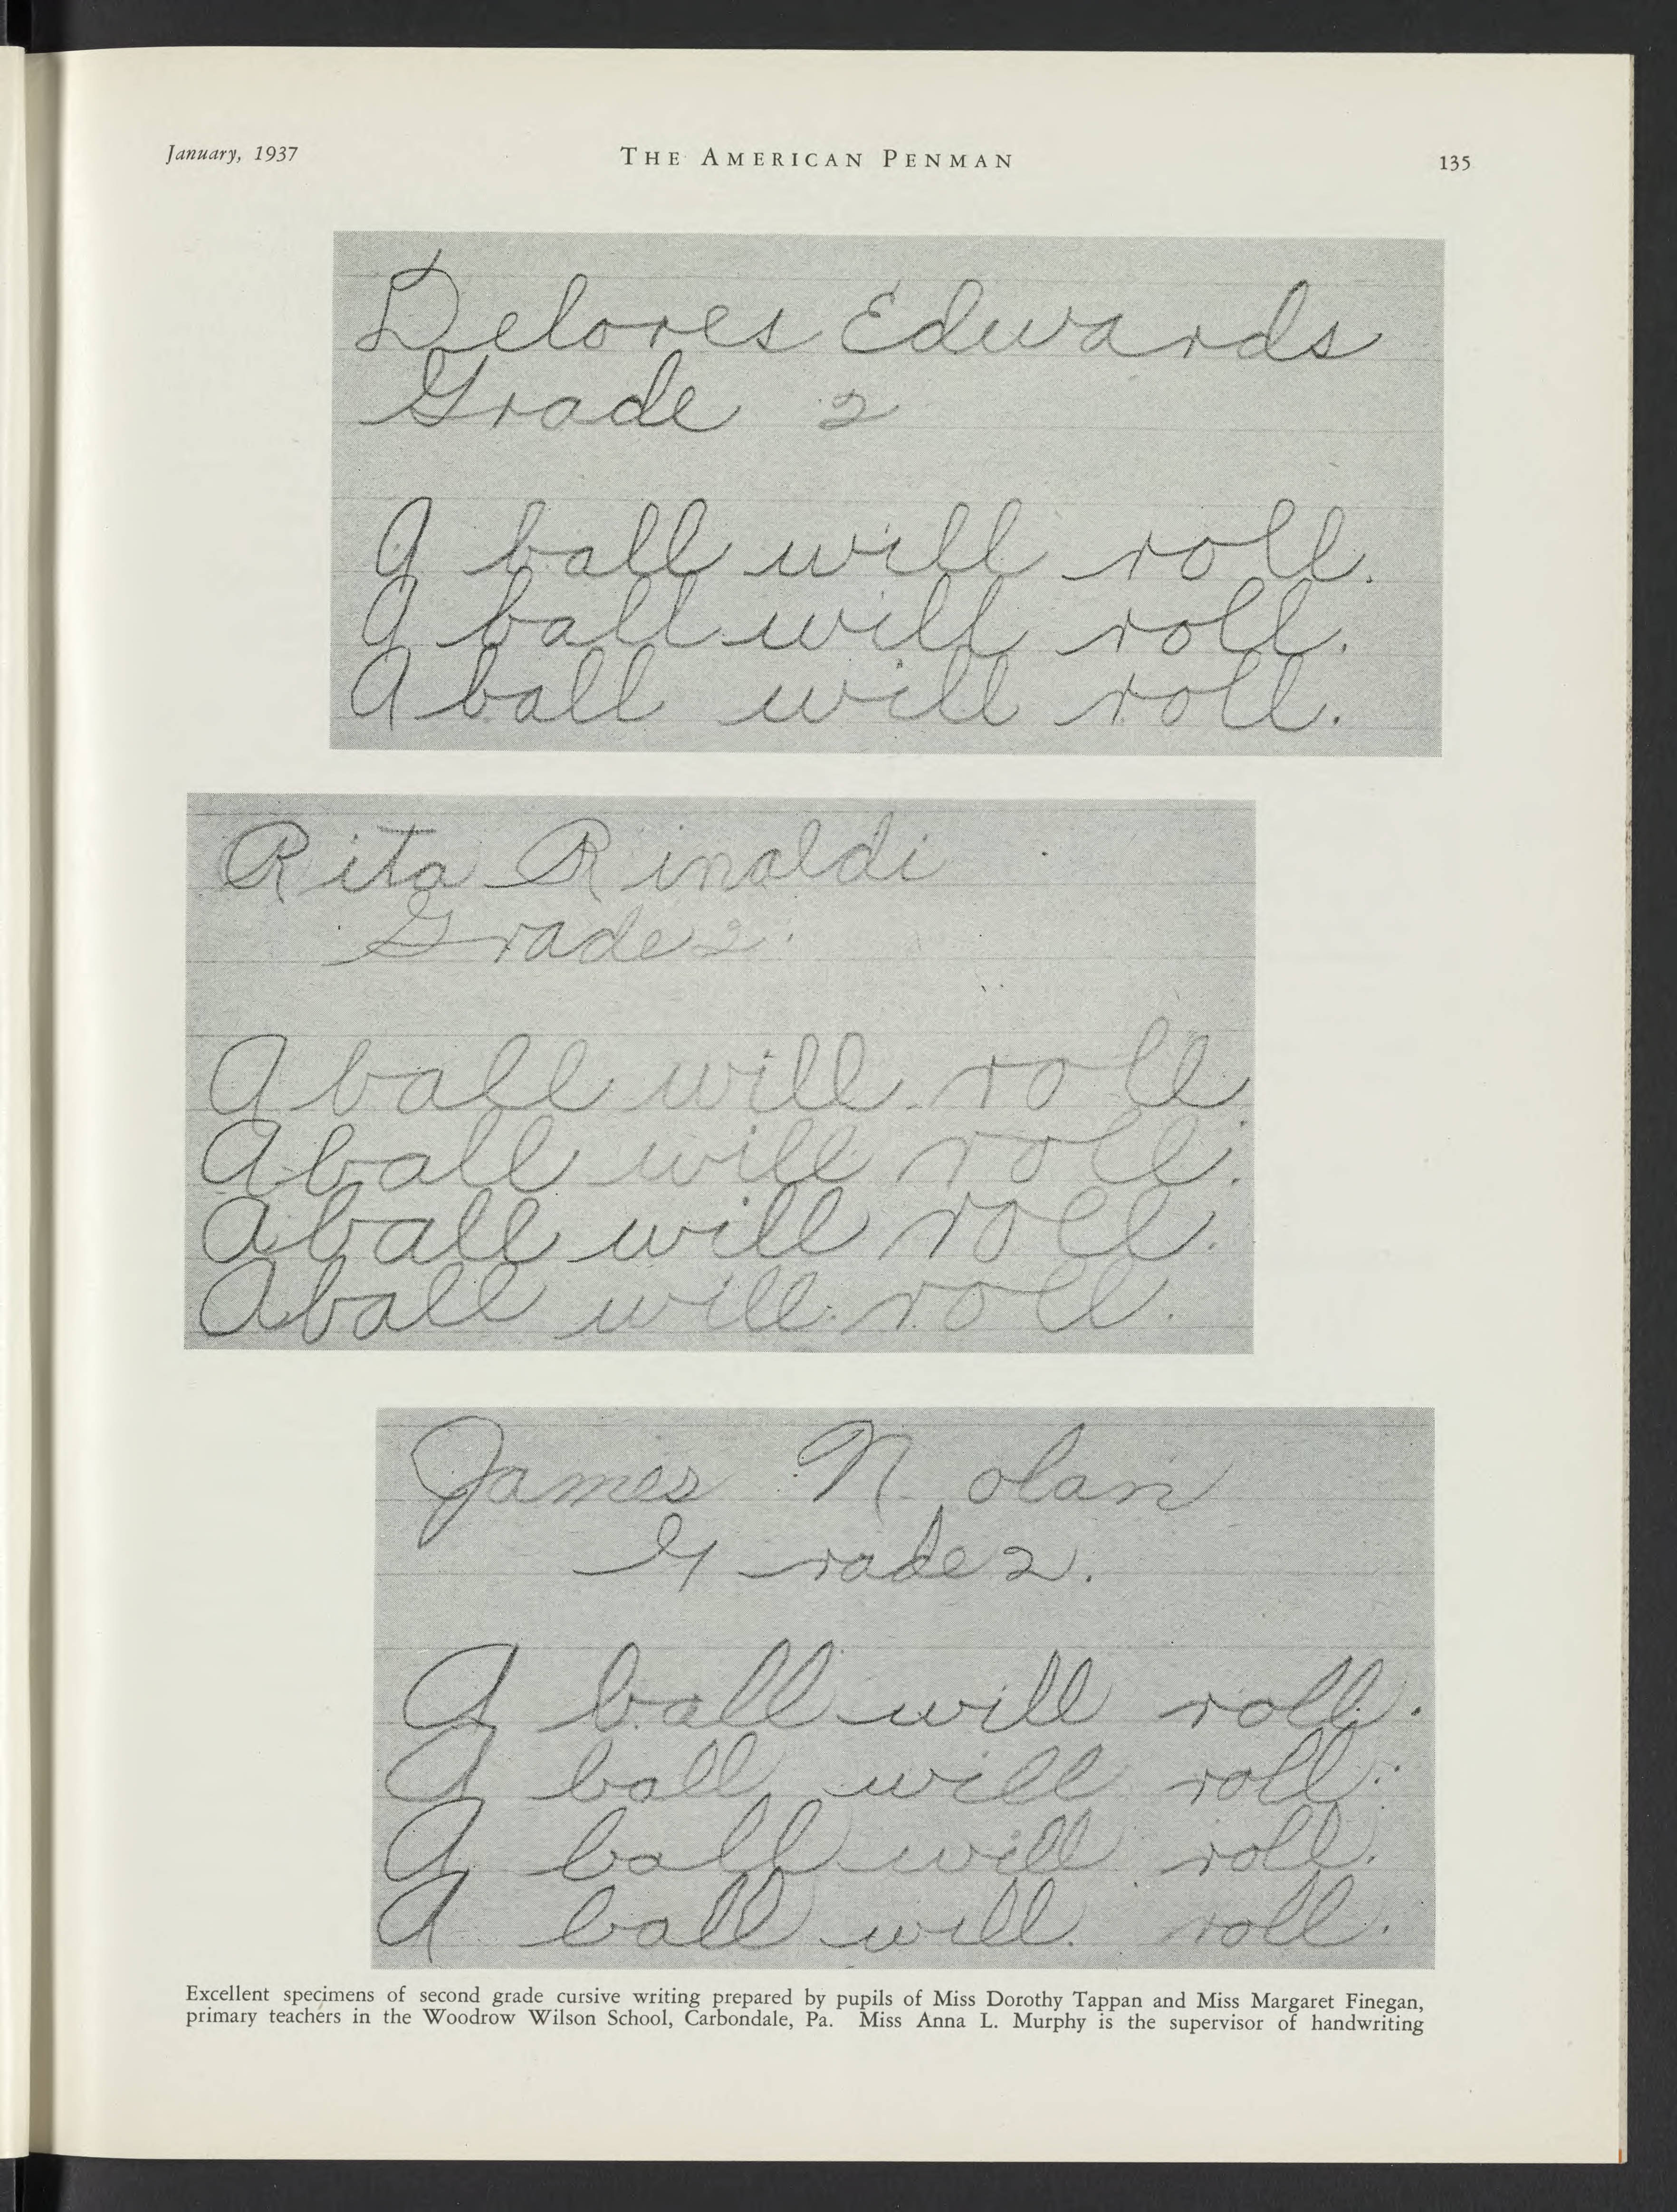 January, 1937 THE AMERICAN PENMAN 135
Delores Edwards
Grade 2
A ball will roll.
A ball will roll.
A ball will roll.
Rita Rinaldi
Grade 2.
A ball will roll
A ball will roll.
A ball will roll.
A ball will roll.
James Nolan
Grade 2.
A ball will roll.
A ball will roll.
A ball will roll.
A ball will roll.
Excellent specimens of second grade cursive writing prepared by pupils of Miss Dorothy Tappan and Miss Margaret Finegan,
primary teachers in the Woodrow Wilson School, Carbondale, Pa. Miss Anna L. Murphy is the supervisor of handwriting